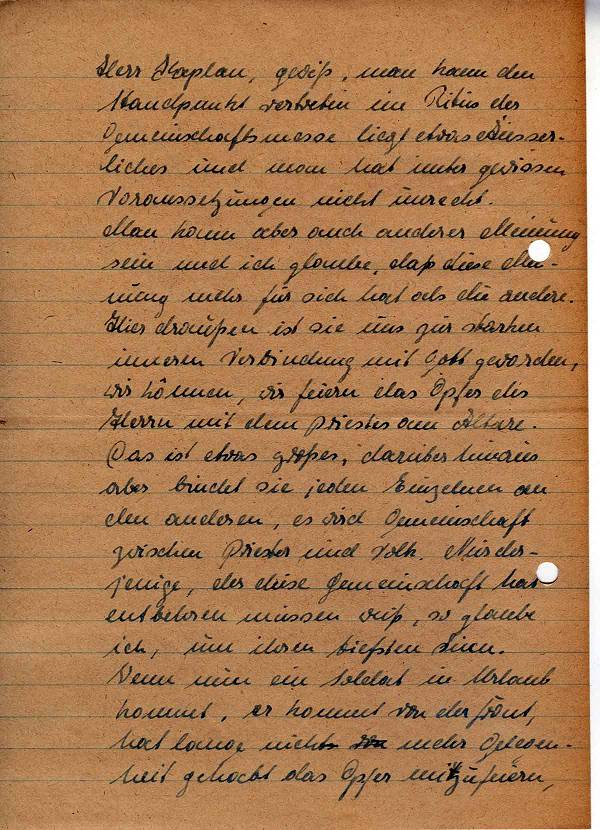 Herr Kaplan, gewiß, man kann den
Standpunkt vertreten im Ritus der
Gemeinschaftsmesse liegt etwas Äusser-
liches und man hat unter gewissen
Voraussetzungen nicht unrecht.
Man kann aber auch anderer Meinung
sein und ich glaube, daß diese Mei-
nung mehr für sich hat als die andere.
Hier draußen ist sie uns zur starken
inneren Verbindung mit Gott geworden,
wir können, wir feiern das Opfer des
Herrn mit dem Priester am Altare.
Das ist etwas großes, darüber hinaus
aber bindet sie jeden Einzelnen an
den anderen, es wird Gemeinschaft
zwischen Priester und Volk. Nur der-
jenige, der diese Gemeinschaft hat
entbehren müssen weiß, so glaube
ich, um ihren tiefsten Sinn.
Wenn nun ein Soldat in Urlaub
kommt, er kommt von der Front,
hat lange nicht mehr Gelegen-
heit gehabt das Opfer mitzufeiern,